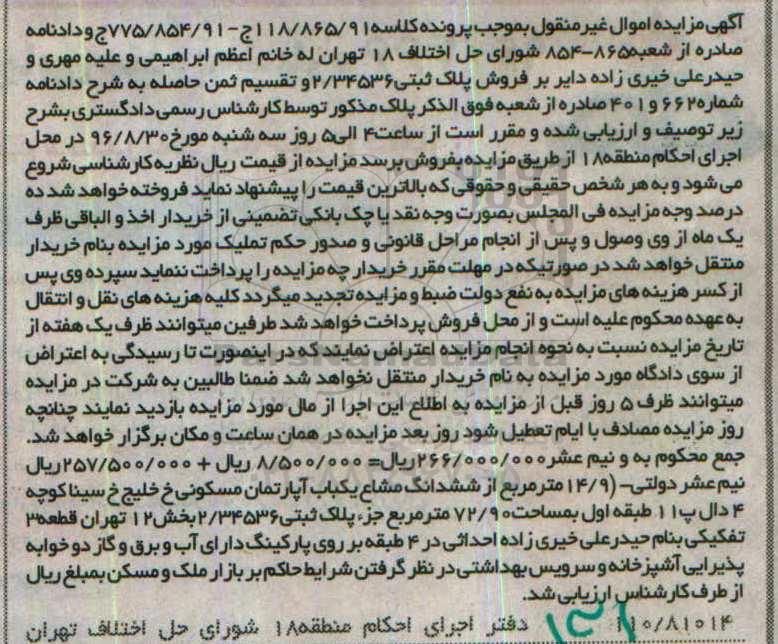 آگهی مزایده اموال غیر منقول بموجب پرونده کلاسه ۱۱۸/۸۶۵/۹۱ج-۷۷۵/۸۵۴/۹۱ج و دادنامه
صادره از شعبه ۸۶۵-۸۵۴ شورای حل اختلاف ۱۸ تهران له خانم اعظم ابراهیمی و علیه مهری و
حیدرعلی خیری زاده دایر بر فروش پلاک ثبتی ۲/۳۴۵۳۶ و تقسیم ثمن حاصله به شرح دادنامه
شماره ۶۶۲ و ۴۰۱ صادره از شعبه فوق الذکر پلاک مذکور توسط کارشناس رسمی دادگستری بشرح
زیر توصیف و ارزیابی شده و مقرر است از ساعت ۴ الی ۵ روز سه شنبه مورخ ۹۶/۸/۳۰ در محل
اجرای احکام منطقه ۱۸ از طریق مزایده بفروش برسد مزایده از قیمت ریال نظریه کارشناسی شروع
می شود و به هر شخص حقیقی و حقوقی که بالاترین قیمت را پیشنهاد نماید فروخته خواهد شد ده
درصد وجه مزایده فی المجلس بصورت وجه نقد یا چک بانکی تضمینی از خریدار اخذ و الباقی ظرف
یک ماه از وی وصول و پس از انجام مراحل قانونی و صدور حکم تملیک مورد مزایده بنام خریدار
منتقل خواهد شد در صورتیکه در مهلت مقرر خریدار چه مزایده را پرداخت ننماید سپرده وی پس
از کسر هزینه های مزایده به نفع دولت ضبط و مزایده تجدید میگردد کلیه هزینه های نقل و انتقال
به عهده محکوم علیه است و از محل فروش پرداخت خواهد شد طرفین میتوانند ظرف یک هفته از
تاریخ مزایده نسبت به نحوه انجام مزایده اعتراض نمایند که در اینصورت تا رسیدگی به اعتراض
از سوی دادگاه مورد مزایده به نام خریدار منتقل نخواهد شد ضمنا طالبین به شرکت در مزایده
میتوانند ظرف ۵ روز قبل از مزایده به اطلاع این اجرا از مال مورد مزایده بازدید نمایند چنانچه
روز مزایده مصادف با ایام تعطیل شود روز بعد مزایده در همان ساعت و مکان برگزار خواهد شد.
جمع محکوم به و نیم عشر ۲۶۶/۰۰۰/۰۰۰ریال= ۸/۵۰۰/۰۰۰ ریال + ۲۵۷/۵۰۰/۰۰۰ریال
نیم عشر دولتی- (۱۴/۹ مترمربع از ششدانگ مشاع یکباب آپارتمان مسکونی خ خلیج خ سینا کوچه
۴ دال پ۱۱ طبقه اول بمساحت ۷۲/۹۰ مترمربع جزء پلاک ثبتی ۲/۳۴۵۳۶ بخش ۱۲ تهران قطعه ۳
تفکیکی بنام حیدرعلی خیری زاده احداثی در ۴ طبقه بر روی پارکینگ دارای آب و برق و گاز دو خوابه
پذیرایی آشپزخانه و سرویس بهداشتی در نظر گرفتن شرایط حاکم بر بازار ملک و مسکن بمبلغ ریال
از طرف کارشناس ارزیابی شد.
۱۱۰/۸۱۰۱۴ دفتر اجرای احکام منطقه ۱۸ شورای حل اختلاف تهران